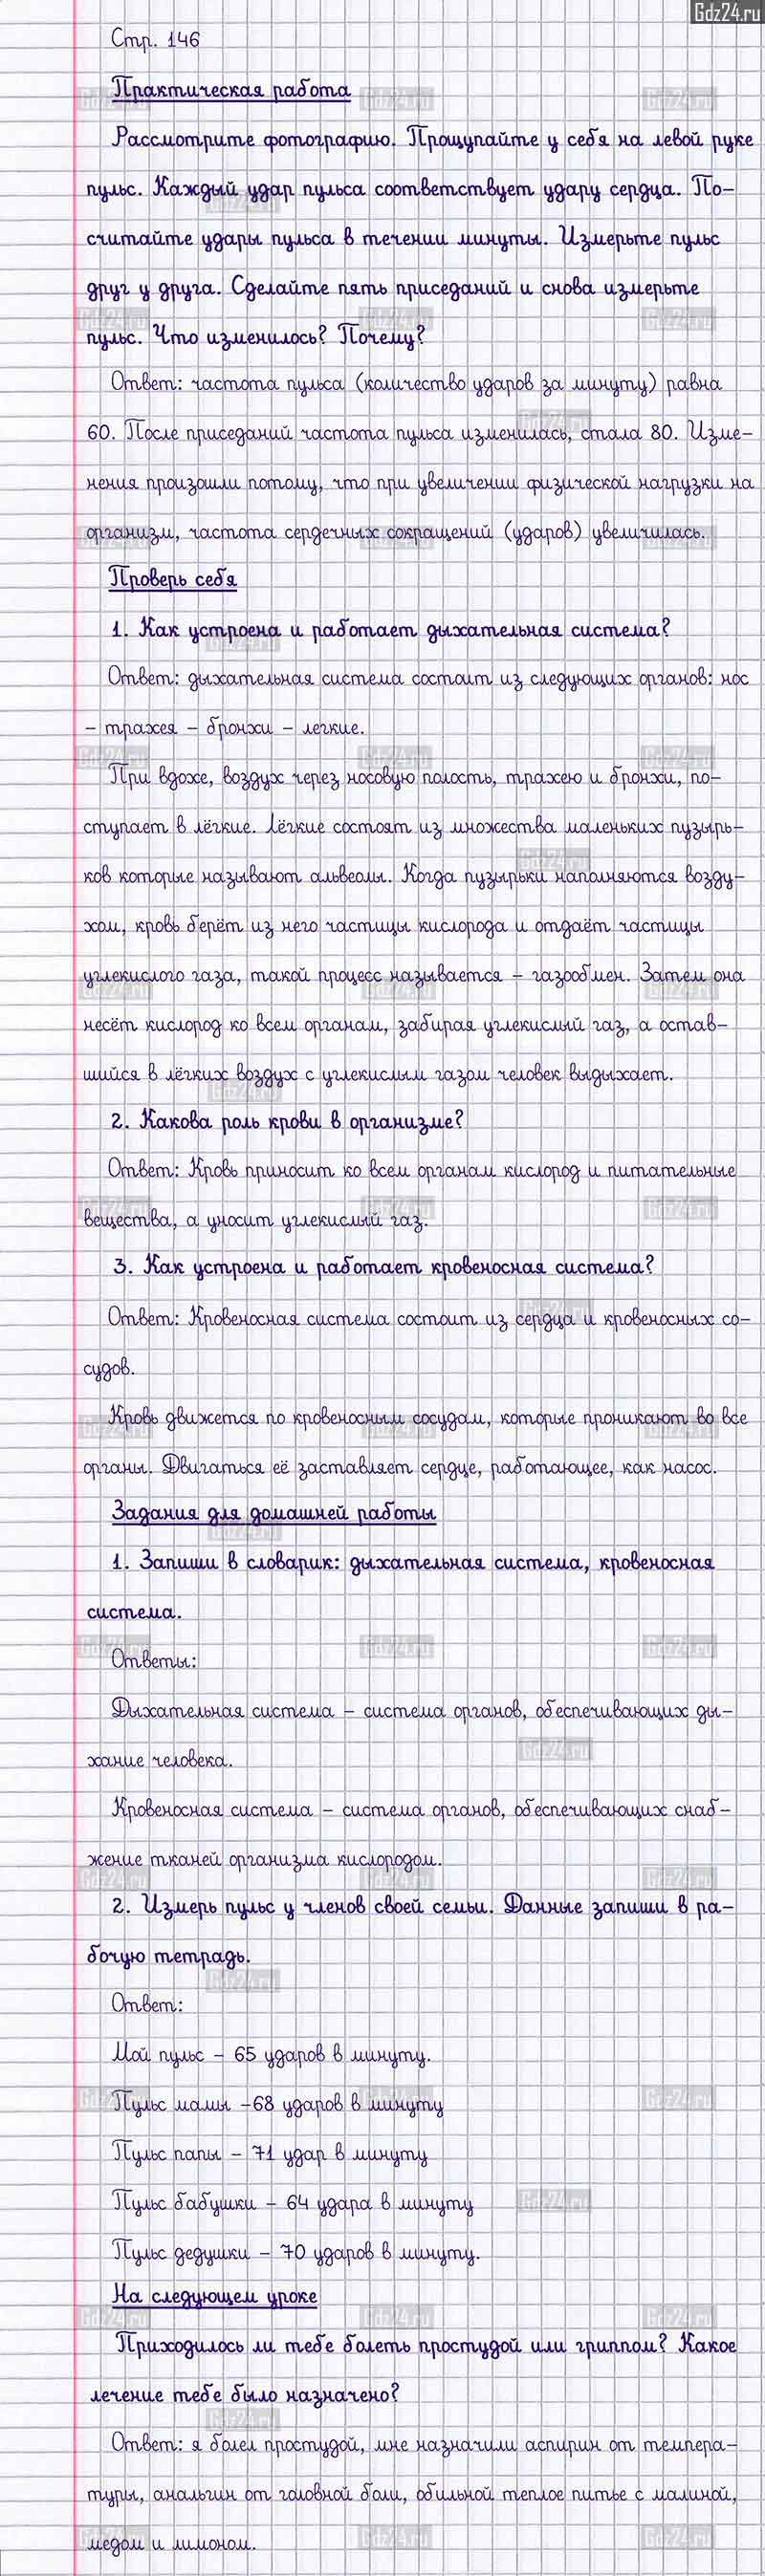 Gdz24.ru
Стр. 146
Практическая работа
Рассмотрите фотографию. Прощупайте у себя на левой руке
пульс. Каждый удар пульса соответствует удару сердца. По-
считайте удары пульса в течении минуты. Измерьте пульс
друг у друга. Сделайте пять приседаний и снова измерьте
пульс. Что изменилось? Почему?
Ответ: частота пульса (количество ударов за минуту) равна
60. После приседаний частота пульса изменилась, стала 80. Изме-
нения произошли потому, что при увеличении физической нагрузки на
организм, частота сердечных сокращений (ударов) увеличилась.
Проверь себя
1. Как устроена и работает дыхательная система?
Ответ: дыхательная система состоит из следующих органов: нос
– трахея – бронхи – легкие.
При вдохе, воздух через носовую полость, трахею и бронхи, по-
ступает в лёгкие. Лёгкие состоят из множества маленьких пузырь-
ков которые называют альвеолы. Когда пузырьки наполняются возду-
хом, кровь берёт из него частицы кислорода и отдаёт частицы
углекислого газа, такой процесс называется – газообмен. Затем она
несёт кислород ко всем органам, забирая углекислый газ, а остав-
шийся в лёгких воздух с углекислым газом человек выдыхает.
2. Какова роль крови в организме?
Ответ: Кровь приносит ко всем органам кислород и питательные
вещества, а уносит углекислый газ.
3. Как устроена и работает кровеносная система?
Ответ: Кровеносная система состоит из сердца и кровеносных со-
судов.
Кровь движется по кровеносным сосудам, которые проникают во все
органы. Двигаться её заставляет сердце, работающее, как насос.
Задания для домашней работы
1. Запиши в словарик: дыхательная система, кровеносная
система.
Ответы:
Дыхательная система – система органов, обеспечивающих ды-
хание человека.
Кровеносная система – система органов, обеспечивающих снаб-
жение тканей организма кислородом.
2. Измерь пульс у членов своей семьи. Данные запиши в ра-
бочую тетрадь.
Ответ:
Мой пульс – 65 ударов в минуту.
Пульс мамы –68 ударов в минуту
Пульс папы – 71 удар в минуту
Пульс бабушки – 64 удара в минуту
Пульс дедушки – 70 ударов в минуту.
На следующем уроке
Приходилось ли тебе болеть простудой или гриппом? Какое
лечение тебе было назначено?
Ответ: я болел простудой, мне назначили аспирин от темпера-
туры, анальгин от головной боли, обильной теплое питье с малиной,
медом и лимоном.